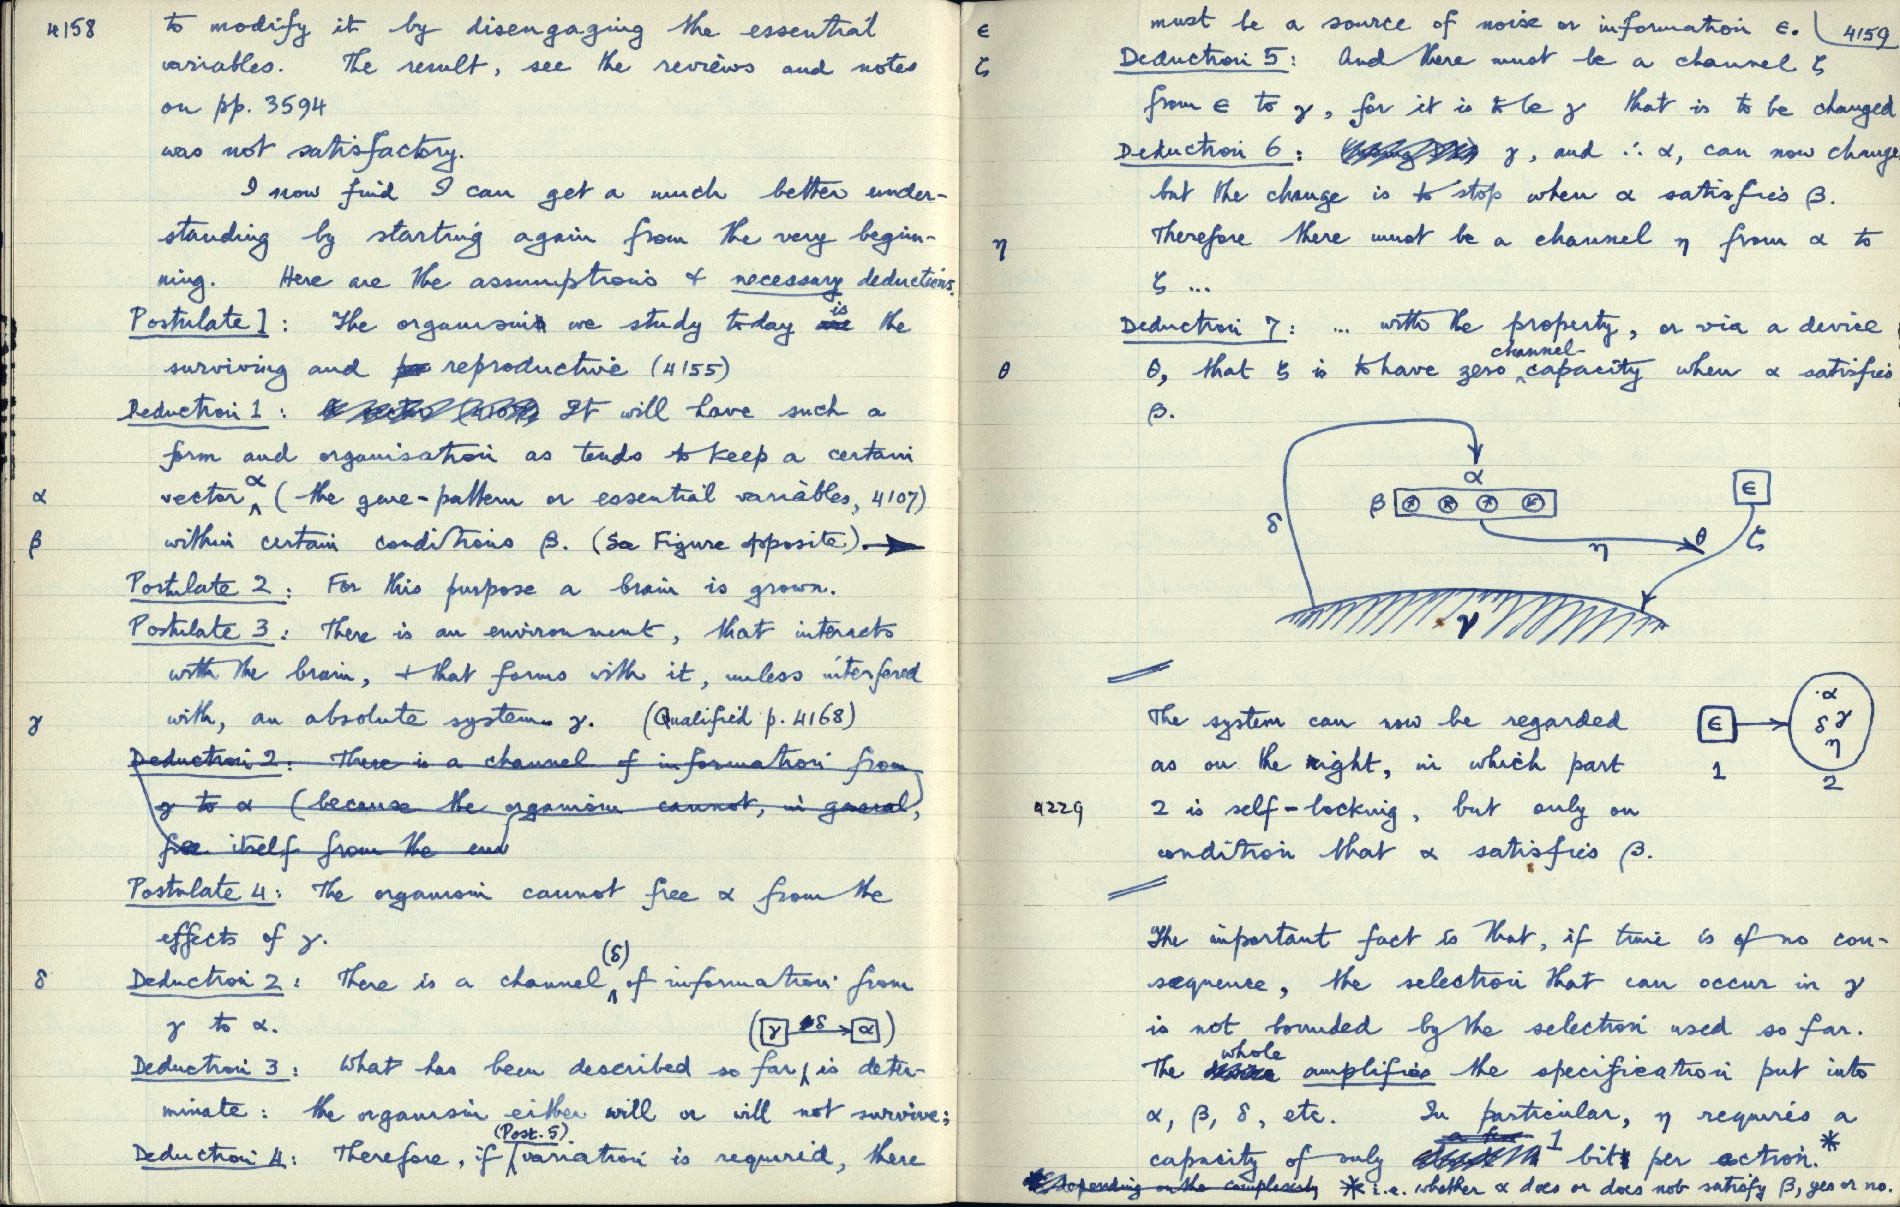 4158
to modify it by disengaging the essential
variables. The result, see the reviews and notes
on pp. 3594
was not satisfactory.
I now find I can get a much better under-
standing by starting again from the very begin-
ning. Here are the assumptions & necessary deductions.
Postulate 1: The organism we study today is the
surviving and reproductive (4155)
Deduction 1: It will have such a
form and organisation as tends to keep a certain
α vector α (the gene-pattern or essential variables, 4107)
β within certain conditions β. (See Figure opposite).
Postulate 2: For this purpose a brain is grown.
Postulate 3: There is an environment, that interacts
with the brain, & that forms with it, unless interfered
γ with, an absolute system γ. (Qualified p. 4168)
Deduction 2: There is a channel of information from
γ to α (because the organism cannot, in general,
free itself from the env
Postulate 4: The organism cannot free α from the
effects of γ.
δ Deduction 2: There is a channel (δ) of information from
γ to α. (γ δ α)
Deduction 3: What has been described so far, is deter-
minate: the organism either will or will not survive;
Deduction 4: Therefore, if (Post. 5) variation is required, there
4159
ε must be a source of noise or information ε.
ζ Deduction 5: And there must be a channel ζ
from ε to γ, for it is to be γ that is to be changed
Deduction 6: γ, and ∴ α, can now change
but the change is to stop when α satisfies β.
η Therefore there must be a channel η from α to
ζ ...
Deduction 7: ... with the property, or via a device
θ θ, that ζ is to have zero channel-capacity when α satisfies
β.
α
β
ε
δ
η
θ
ζ
γ
The system can now be regarded
as on the right, in which part
4229 2 is self-locking, but only on
condition that α satisfies β.
ε
α
δ γ
η
1
2
The important fact is that, if time is of no con-
sequence, the selection that can occur in γ
is not bounded by the selection used so far.
The whole amplifies the specification put into
α, β, δ, etc. In particular, η requires a
capacity of only 1 bit per action.*
depending on the complexity * i.e. whether α does or does not satisfy β, yes or no.